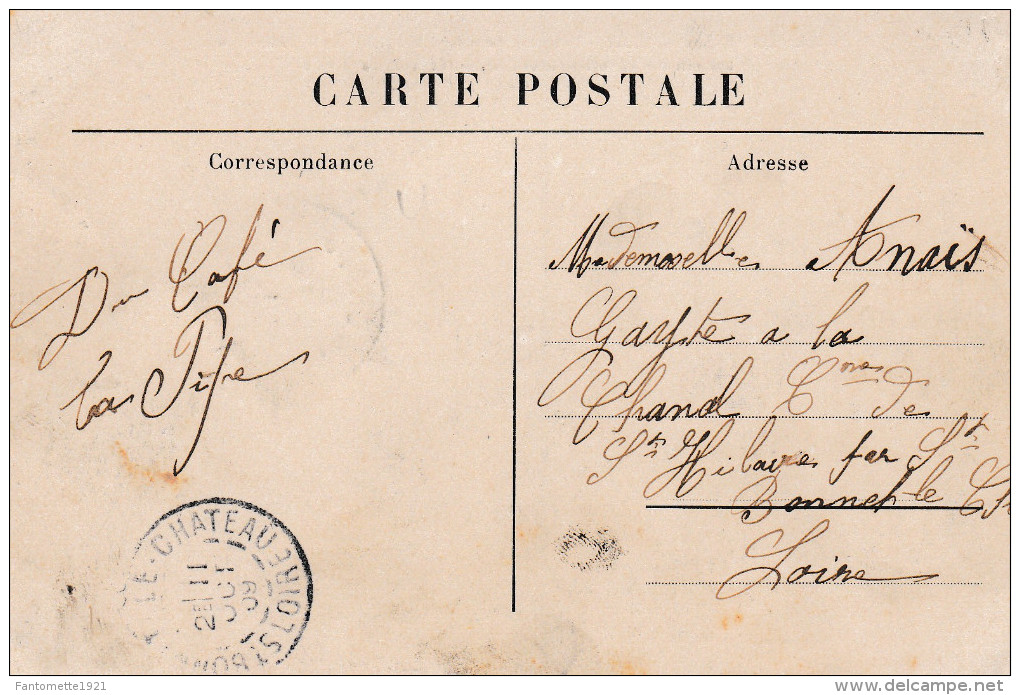 CARTE POSTALE
Correspondance
Adresse
Du Café
bas
Mademoselle Anaïs
a la
Chanal C^ne de
S^t Hilaire par S^t
Bonnet le Ch
Loire
LE-CHATEAU
LOIRE
11
OCT
09
Fantomette1921
delcampe.net